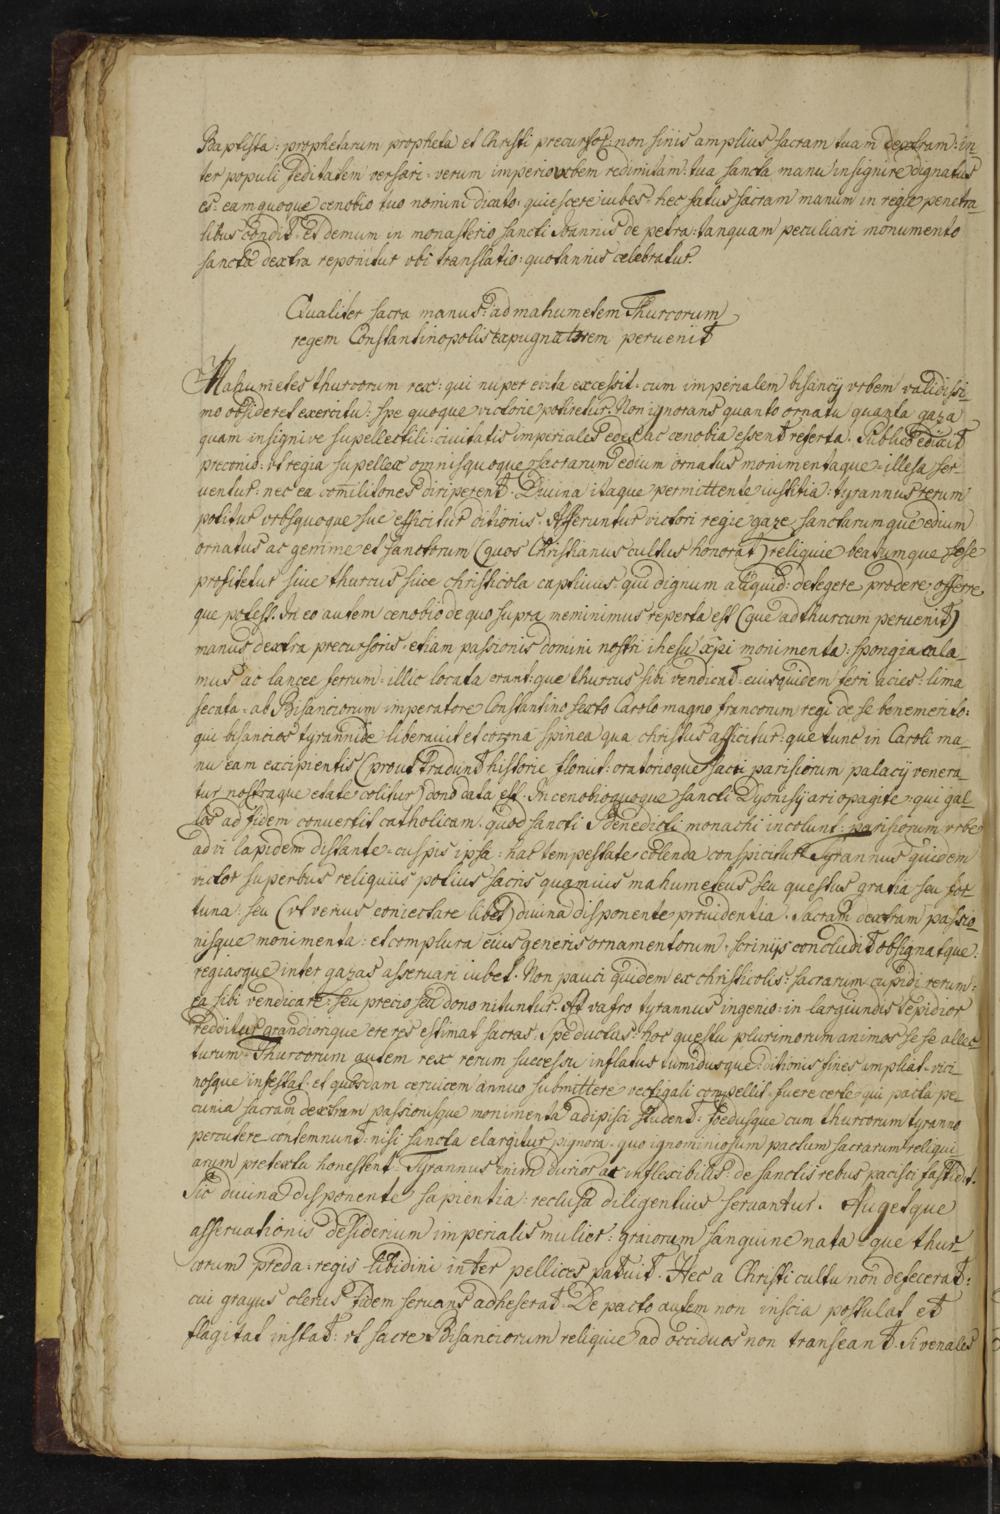 Baptista: prophetarum propheta et Christi precursor: non sinis amplius sacram tuam dextram: in-
ter populi feditatem versari: verum imperio urbem redimitam: tua sancta manu insignire dignatus
es: eam quoque cenobio tuo nomini dicato: quiescere iubes: hec fatus sacram manum in regie penetra-
libus condit: et demum in monasterio sancti Ioannis de petra: tanquam peculiari monumento
sancta dextra reponitur ubi translatio: quotannis celebratur.
Qualiter sacra manus: ad mahumetem Thurcorum
regem Constantinopolis expugnatorem peruenit
Mahumetes thurcorum rex: qui nuper e vita excessit: cum imperialem bisancij urbem validissi-
mo obsideret exercitu: spe quoque victorie potiretur. Non ignorans quanto ornatu quanta gaza
quam insignive supellectili: civitatis imperiales edes ac cenobia essent referta. Publico edicit
preconio: ut regia supellex omnisquoque sacrarum edium ornatus monimentaque: illesa ser
ventur: nec ea com̃ilitones diriperent. Divina itaque permittente iustitia: tyrannus rerum
potitur urbsquoque sue efficitur ditionis. Afferuntur victori regie gaze sanctarumque edium
ornatus ac gemme et sanctorum (quos Christianus cultus honorat) reliquie beatumque sese
profitetur sive thurcus sive christicola captivus: qui dignum aliquid: detegere prodere: offerre
que potest. In eo autem cenobio de quo supra meminimus reperta est (que ad thurcum peruenit)
manus dextra precursoris: etiam passionis domini nostri ihesu xp̃i monimenta: spongia cala-
mus ac lancee ferrum: illic locata erant: que thurcus sibi vendicat: euisquidem ferri acies: lima
secata: ab Bisanciorum imperatore Constantino sexto Carolo magno francorum regi de se benemerito:
qui bisancios tyrannide liberavit et corona spinea qua christus afficitur: que tunc in Caroli ma-
nu eam excipientis (prout tradunt historie floruit: oratorioque sacri parisiorum palacij venera-
tur nostraque etate colitur) dono data est. In cenobioquoque sancti Dyonisij ariopagite: qui gal-
los ad fidem convertit catholicam. quod sancti Benedicti monachi incolunt: parisiorum urbe
ad vi lapidem distante: cuspis ipsa: hac tempestate colenda conspicitur. Tyrannus quidem
victor superbus reliquiis potius sacris quamvis mahumeteus seu questus gratia seu for
tuna: seu (ut verius coniectare libet) divina disponente providentia. Sacram dextram passio-
nisque monimenta: et complura eius generis ornamentorum: scrinijs concludit obsignatque:
regiasque inter gazas asseruari iubet. Non pauci quidem ex christicolis: sacrarum cupidi rerum:
ea sibi vendicare: seu precio seu dono nituntur. At vafro tyrannus ingenio: in largiundis tepidior
redditur grandiorique ere res estimat sacras: Spe ductus: hoc questu plurimorum animos se se allec-
turum. Thurcorum autem rex rerum successu inflatus tumidusque: ditionis fines ampliat: vici-
nosque infestat: et quosdam cervicem annuo submittere vectigali compellit: fuere certe: qui pacta pe-
cunia sacram dextram passionisque monimenta adipisci student: foedusque cum thurcorum tyranno
percutere contemnunt: nisi sancta elargitur pignora: quo ignominiosum pactum sacrarum reliqui
arum pretextu honestent. Tyrannus enim durior ac inflexibilis: de sanctis rebus pacisci fastidit.
Sic divina disponente sapientia: reclusa diligentius servantur. Augetque
asservationis desiderium imperialis mulier: graiorum sanguine nata: que thur-
corum preda: regis libidini inter pellices patuit. Hec a Christi cultu non defecerat:
cui grayus clerus fidem servans adheserat. De pacto autem non inscia postulat et
flagitat instat: ut sacre Bisanciorum reliquie ad occiduos non transeant. Si venales